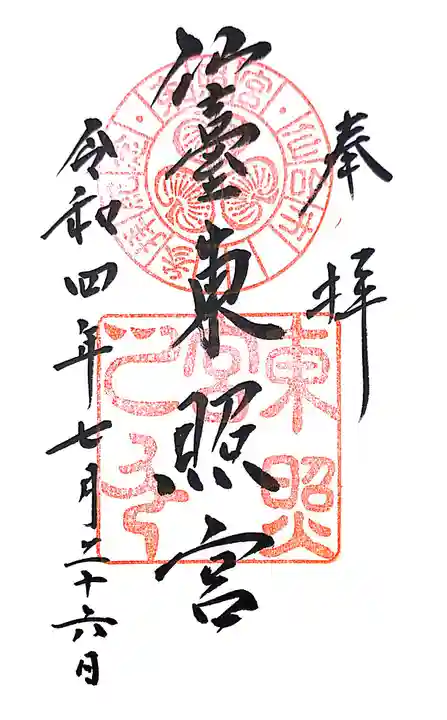 奉拝
仙臺東照宮
令和四年七月二十六日
東照
宮
之印